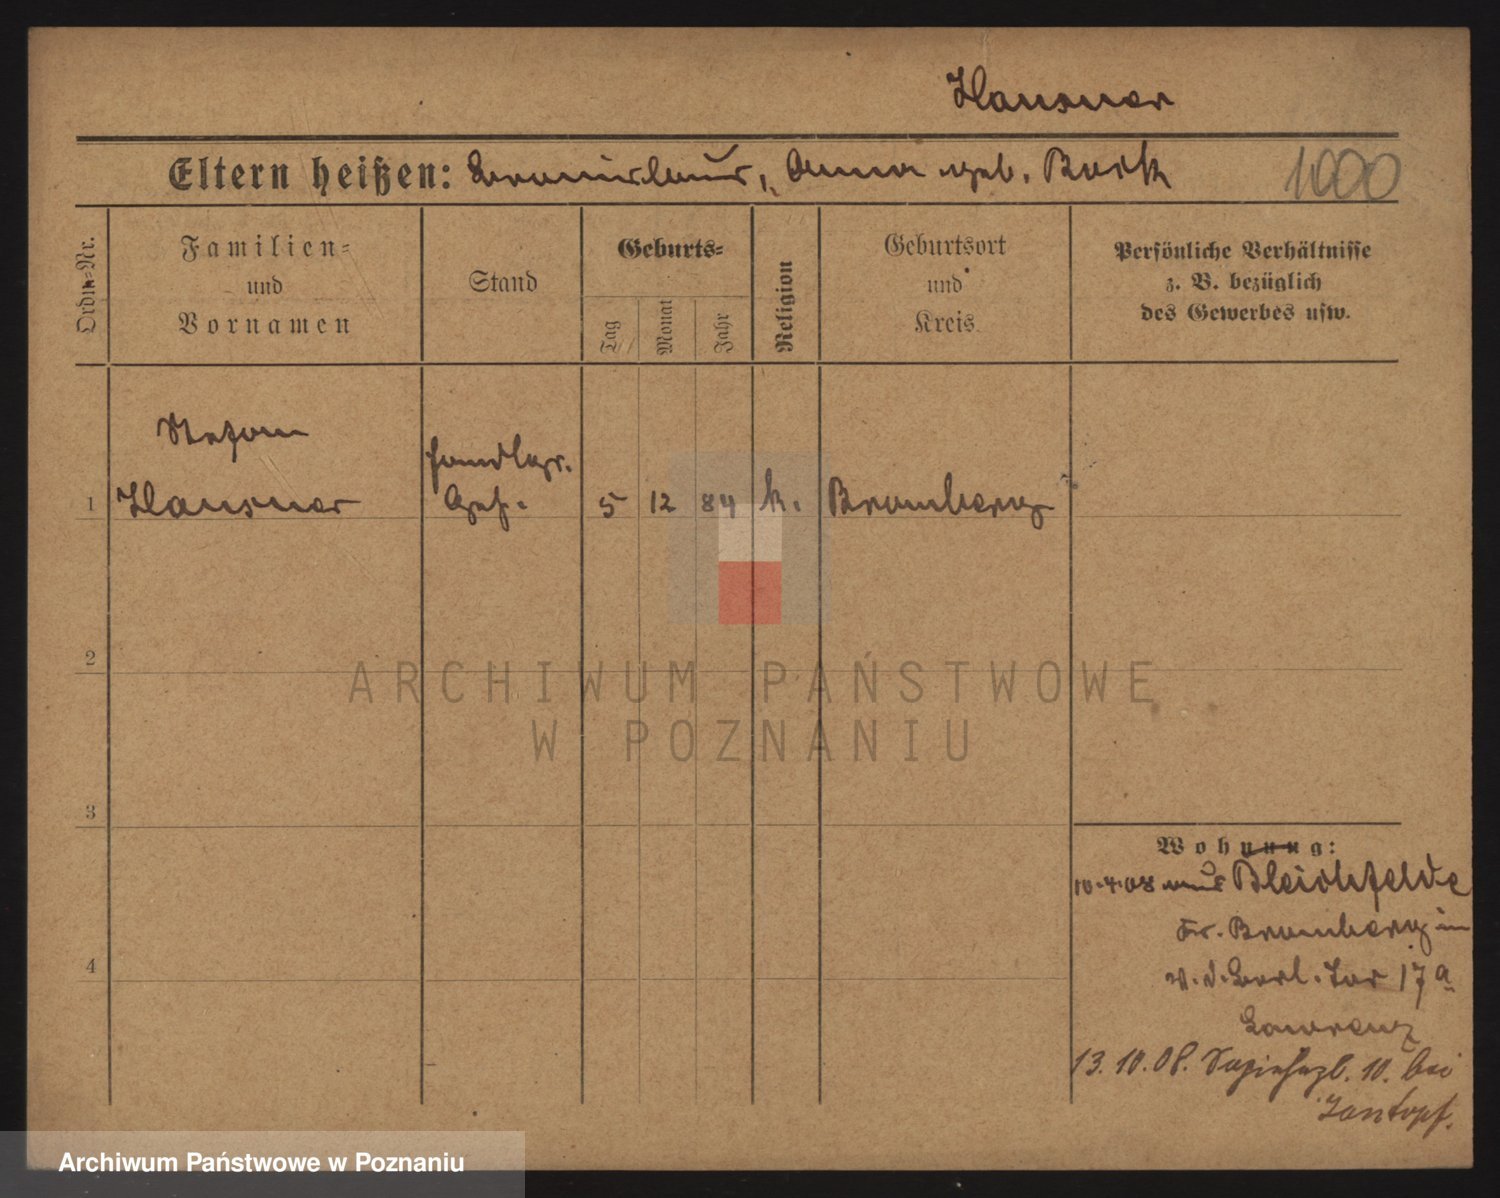 Hausner
Eltern heißen: Bronislaus, Anna geb. Bork
1000
Ordn.-Nr.
Familien-
und
Vornamen
Stand
Geburts-
Tag
Monat
Jahr
Religion
Geburtsort
und
Kreis
Persönliche Verhältnisse
z. B. bezüglich
des Gewerbes usw.
Stefan
1 Hausner
Handlgs.
Geh.
5 12 84 k. Bromberg
2
3
4
Wohnung:
10.4.08 aus Bleichfelde
Kr. Bromberg in
v. d. Berl. Tor 17a
Lawrenz
13.10.08. Sapiehapl. 10. bei
ARCHIWUM PAŃSTWOWE
W POZNANIU
Archiwum Państwowe w Poznaniu